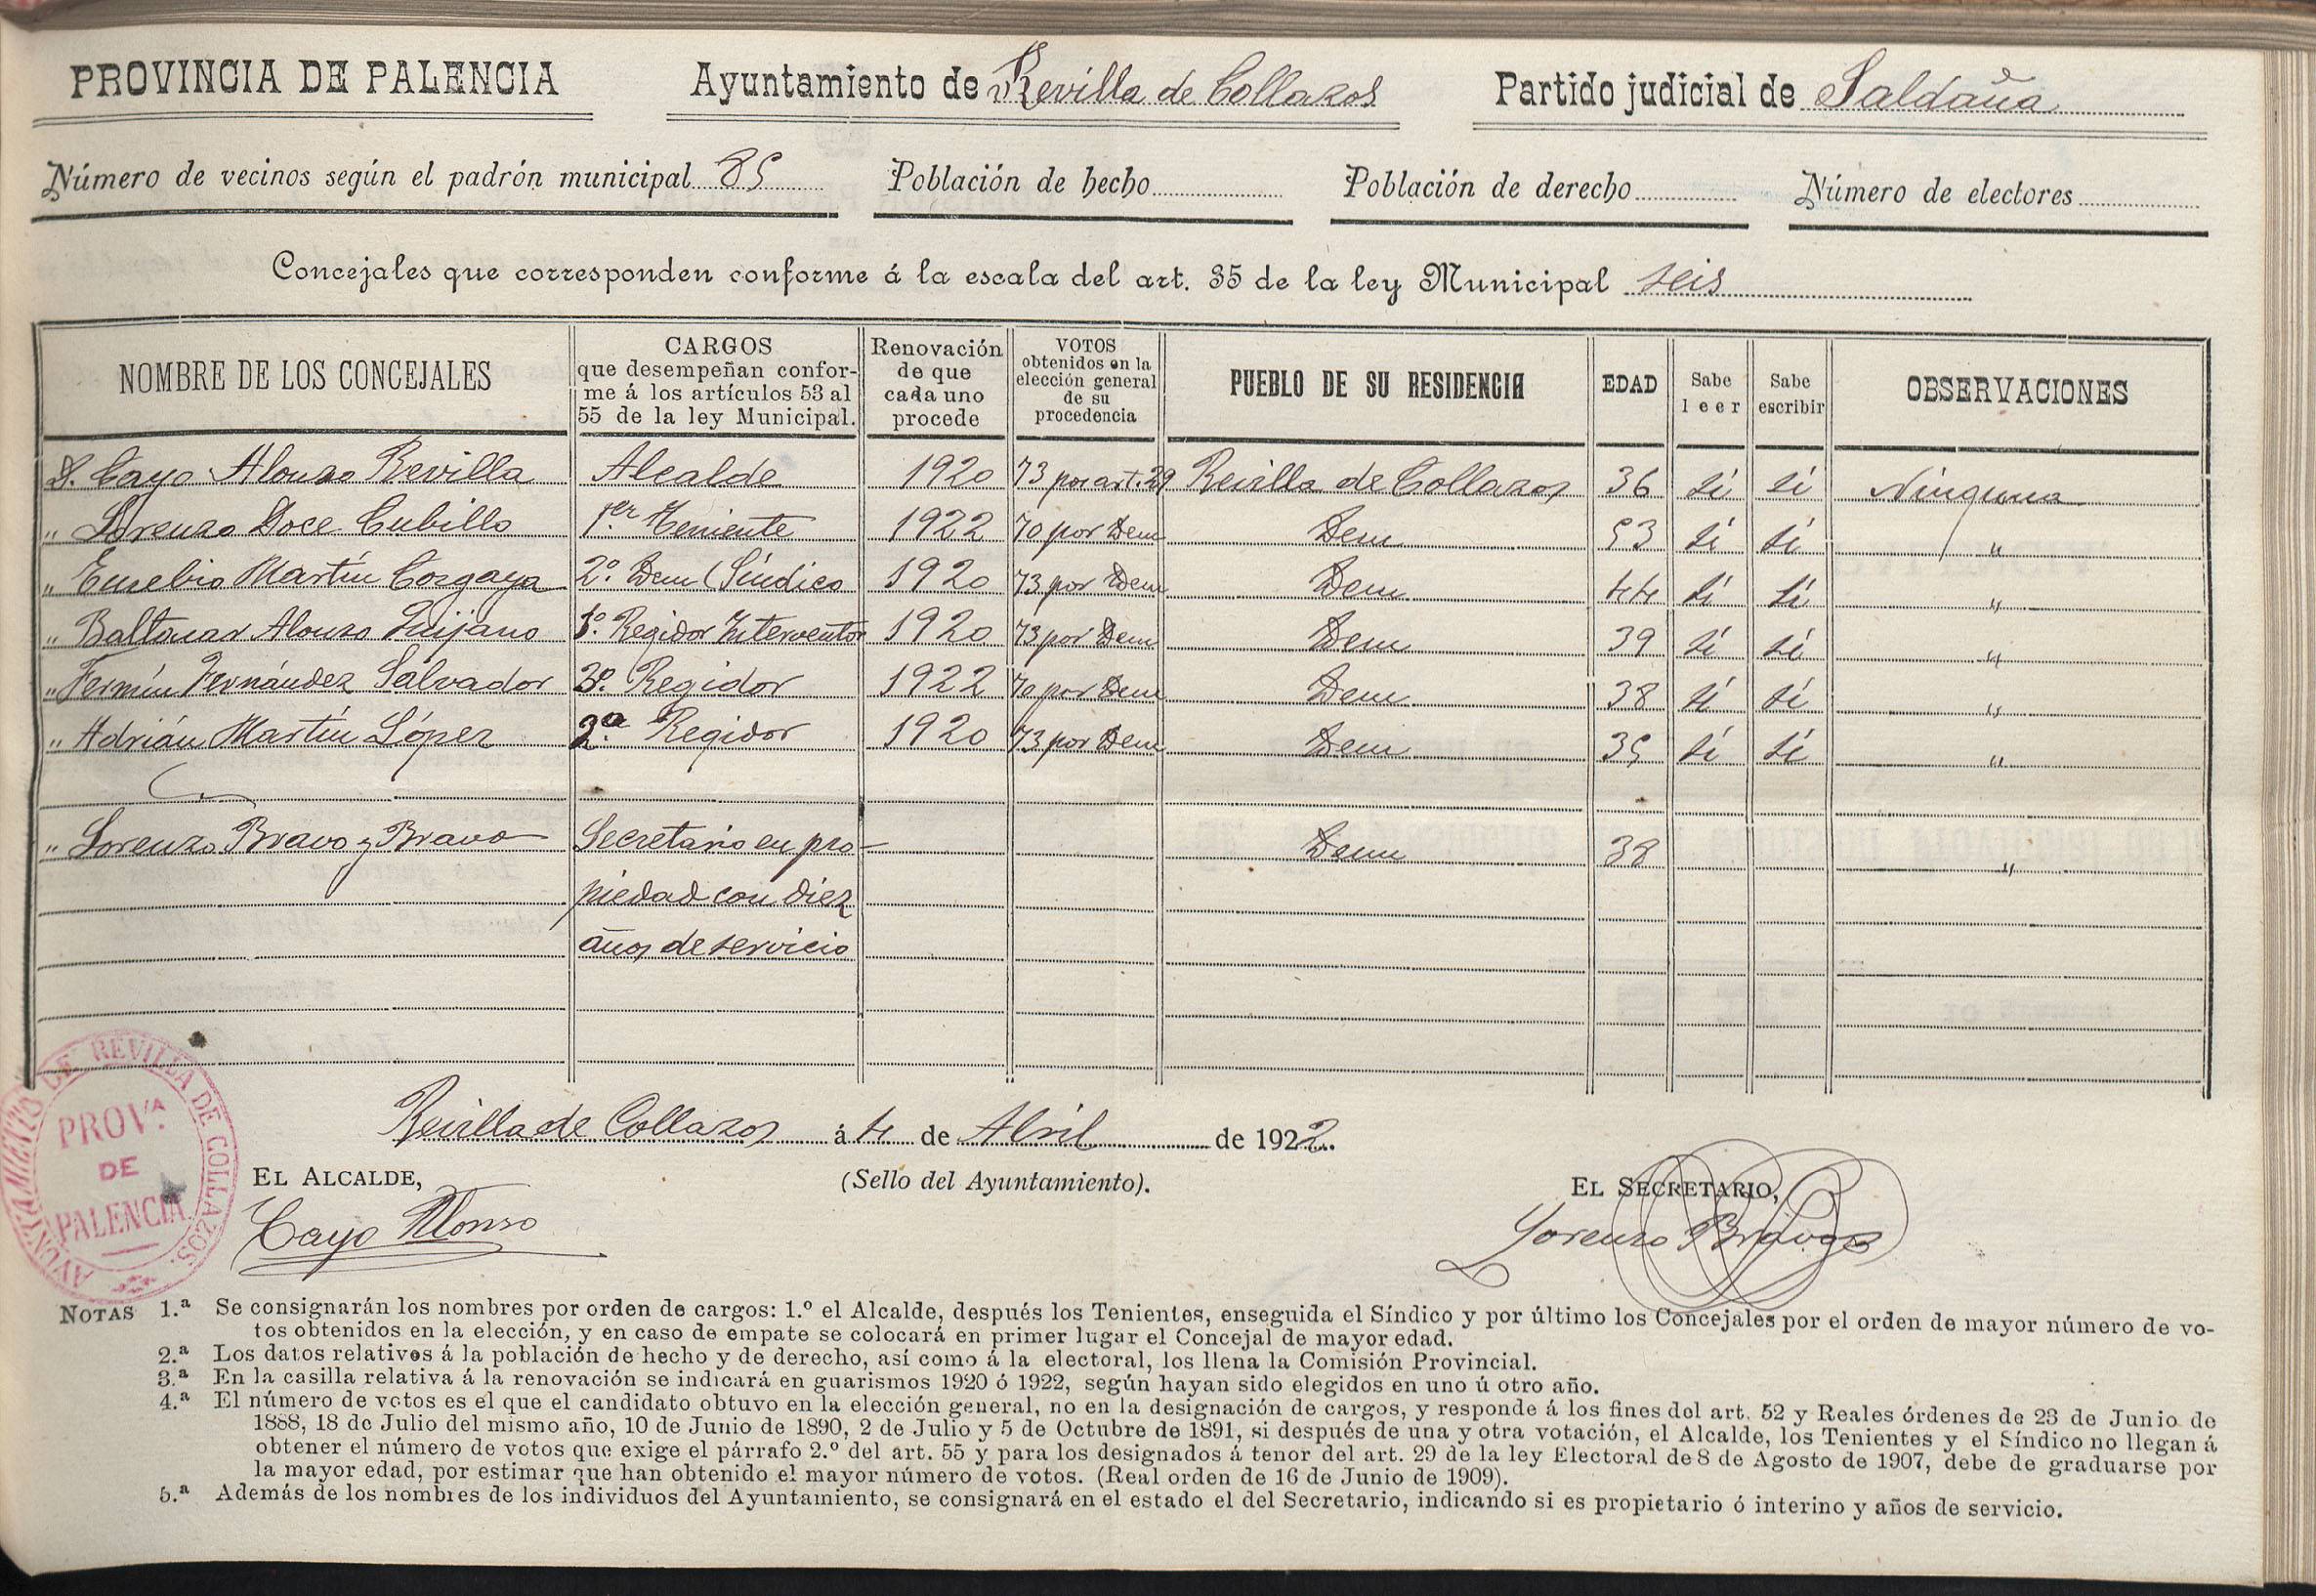 PROVINCIA DE PALENCIA Ayuntamiento de Revilla de Collazos Partido judicial de Saldaña
Número de vecinos según el padrón municipal 85 Población de hecho Población de derecho Número de electores
Concejales que corresponden conforme á la escala del art. 35 de la ley Municipal seis
NOMBRE DE LOS CONCEJALES
CARGOS
que desempeñan confor-
me á los artículos 53 al
55 de la ley Municipal.
Renovación
de que
cada uno
procede
VOTOS
obtenidos en la
elección general
de su
procedencia
PUEBLO DE SU RESIDENCIA
EDAD
Sabe
leer
Sabe
escribir
OBSERVACIONES
D. Cayo Alonso Revilla Alcalde 1920 73 por art. 29 Revilla de Collazos 36 sí sí Ninguna
" Lorenzo Doce Cubillo 1er Teniente 1922 70 por Dem Dem 53 sí sí "
" Eusebio Martín Corgaya 2º Dem (Síndico 1920 73 por Dem Dem 44 sí sí "
" Baltasar Alonso Quijano 1º. Regidor Interventor 1920 73 por Dem Dem 39 sí sí "
" Fermín Fernández Salvador 3º. Regidor 1922 70 por Dem Dem 38 sí sí "
" Adrián Martín López 2º Regidor 1920 73 por Dem Dem 35 sí sí "
" Lorenzo Bravo y Bravo Secretario en pro- Dem 38 "
piedad con diez
años de servicio
AYUNTAMIENTO DE REVILLA DE COLLAZOS.
PROV.ª
DE
PALENCIA
Revilla de Collazos á 4 de Abril de 1922.
EL ALCALDE, (Sello del Ayuntamiento). EL SECRETARIO,
Cayo Alonso Lorenzo Bravo
NOTAS 1.ª Se consignarán los nombres por orden de cargos: 1.º el Alcalde, después los Tenientes, enseguida el Síndico y por último los Concejales por el orden de mayor número de vo-
tos obtenidos en la elección, y en caso de empate se colocará en primer lugar el Concejal de mayor edad.
2.ª Los datos relativos á la población de hecho y de derecho, así como á la electoral, los llena la Comisión Provincial.
3.ª En la casilla relativa á la renovación se indicará en guarismos 1920 ó 1922, según hayan sido elegidos en uno ú otro año.
4.ª El número de votos es el que el candidato obtuvo en la elección general, no en la designación de cargos, y responde á los fines del art. 52 y Reales órdenes de 23 de Junio de
1888, 18 de Julio del mismo año, 10 de Junio de 1890, 2 de Julio y 5 de Octubre de 1891, si después de una y otra votación, el Alcalde, los Tenientes y el Síndico no llegan á
obtener el número de votos que exige el párrafo 2.º del art. 55 y para los designados á tenor del art. 29 de la ley Electoral de 8 de Agosto de 1907, debe de graduarse por
la mayor edad, por estimar que han obtenido el mayor número de votos. (Real orden de 16 de Junio de 1909).
5.ª Además de los nombres de los individuos del Ayuntamiento, se consignará en el estado el del Secretario, indicando si es propietario ó interino y años de servicio.